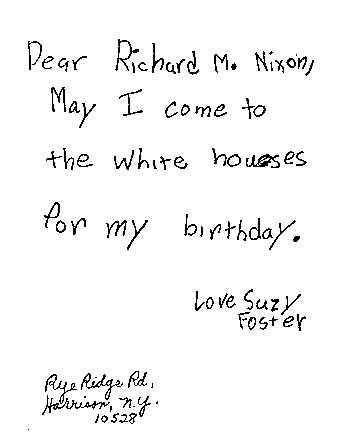 Dear Richard M. Nixon,
May I come to
the white houses
for my birthday.
Love Suzy
Foster
Rye Ridge Rd,
Harrison, N.Y.
10528